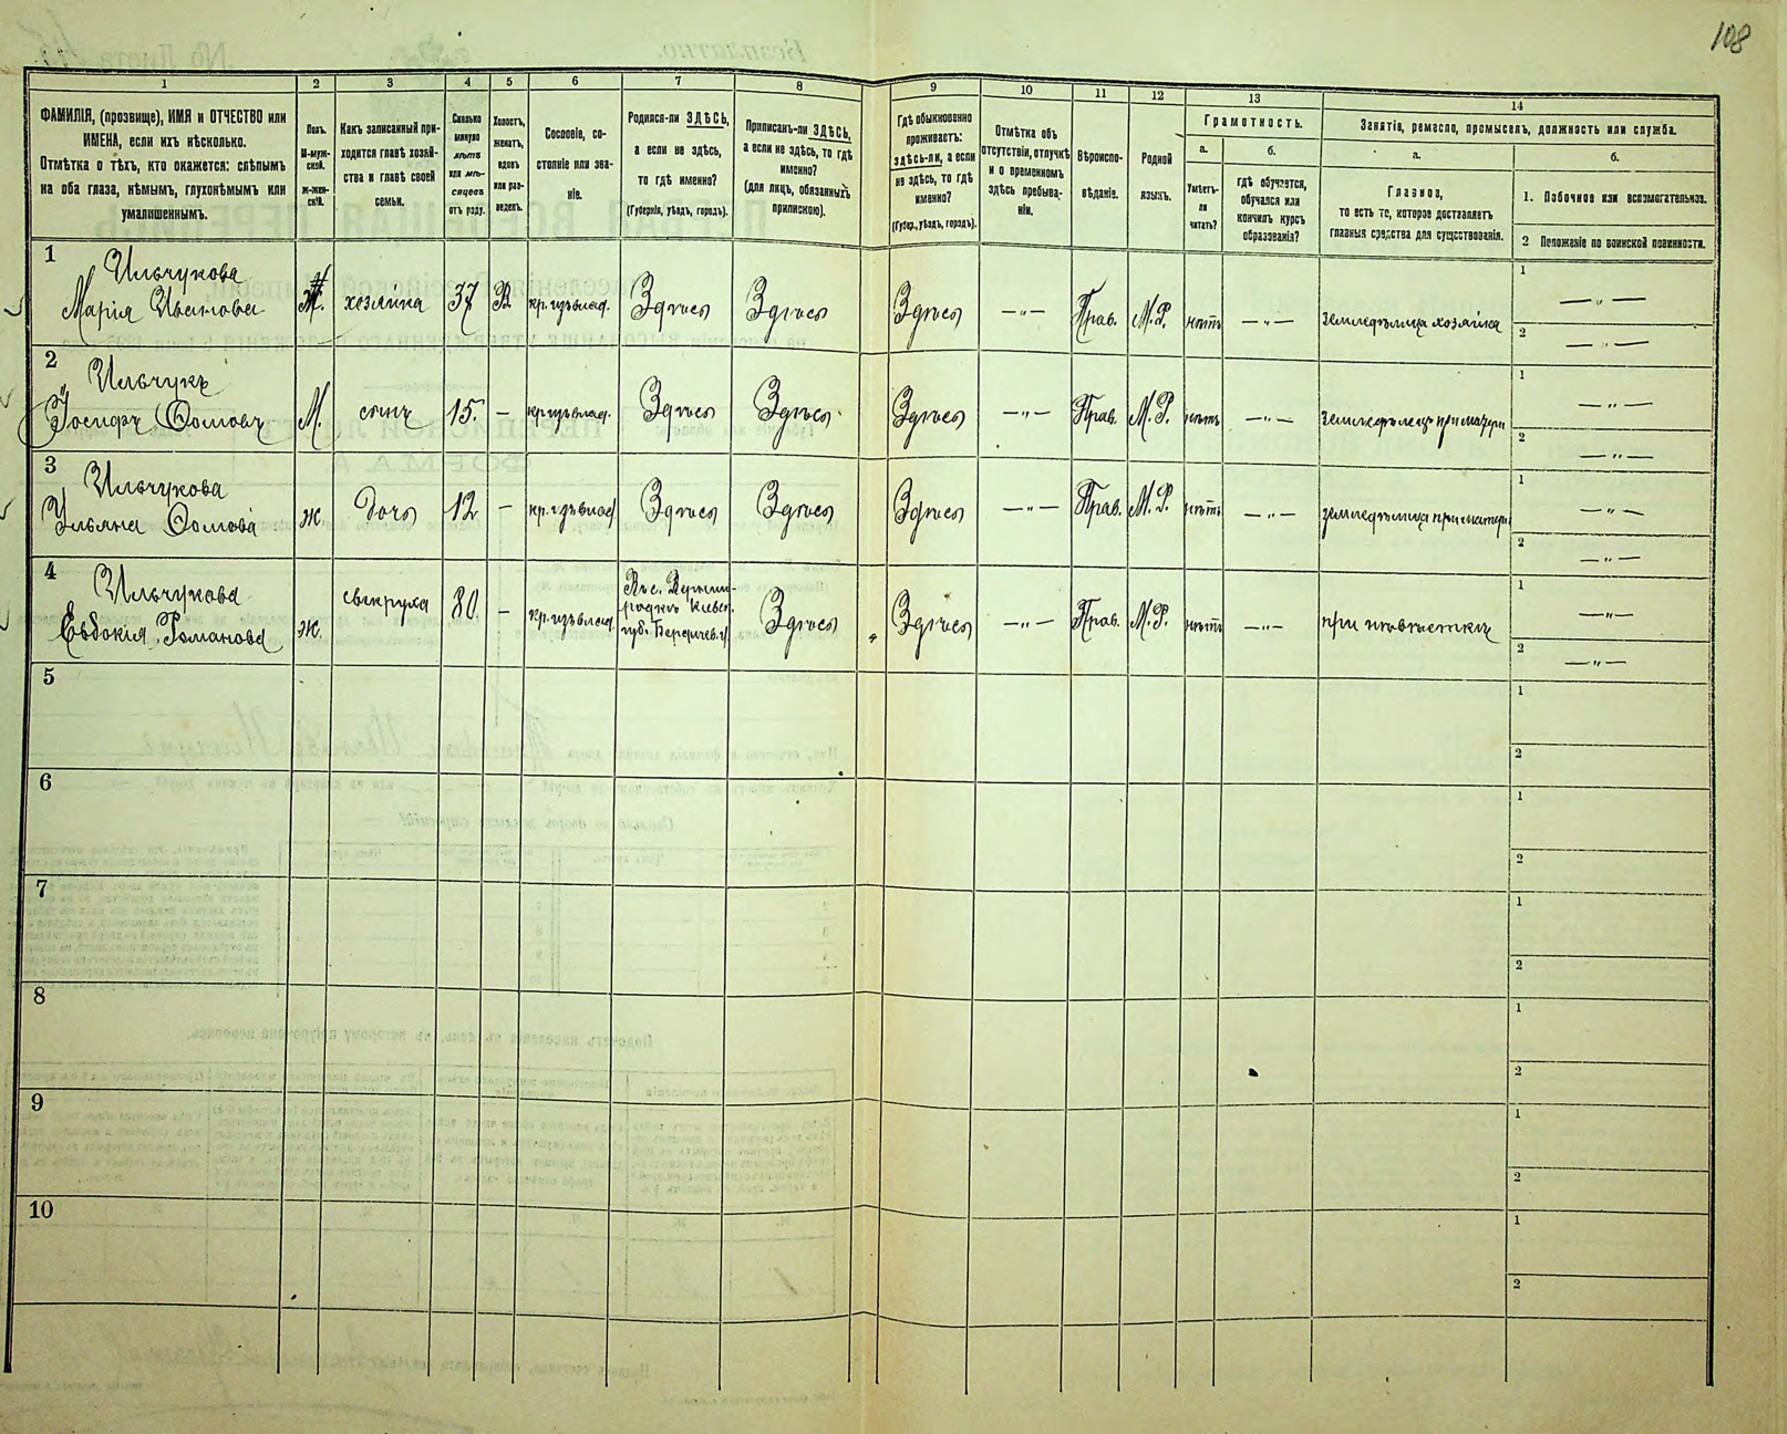 108
1
2
3
4
5
6
7
8
9
10
11
12
13
14
ФАМИЛІЯ, (прозвище), ИМЯ и ОТЧЕСТВО или
ИМЕНА, если ихъ нѣсколько.
Отмѣтка о тѣхъ, кто окажется: слѣпымъ
на оба глаза, нѣмымъ, глухонѣмымъ или
умалишеннымъ.
Полъ.
М-муж-
ской.
ж-жен-
скій.
Какъ записанный при-
ходится главѣ хозяй-
ства и главѣ своей
семьи.
Сколько
минуло
лѣтъ
или мѣ-
сяцевъ
отъ роду.
Холостъ,
женатъ,
вдовъ
или раз-
веденъ.
Сословіе, со-
стояніе или зва-
ніе.
Родился-ли ЗДѢСЬ,
а если не здѣсь,
то гдѣ именно?
(Губернія, уѣздъ, городъ).
Приписанъ-ли ЗДѢСЬ,
а если не здѣсь, то гдѣ
именно?
(для лицъ, обязанныхъ
припискою).
Гдѣ обыкновенно
проживаетъ:
здѣсь-ли, а если
не здѣсь, то гдѣ
именно?
(Губер., уѣздъ, городъ).
Отмѣтка объ
отсутствіи, отлучкѣ
и о временномъ
здѣсь пребыва-
ніи.
Вѣроиспо-
вѣданіе.
Родной
языкъ.
Грамотность.
а.
Умѣетъ-
ли
читать?
б.
гдѣ обучается,
обучался или
кончилъ курсъ
образованія?
Занятіе, ремесло, промыселъ, должность или служба.
а.
Главное,
то есть то, которое доставляетъ
главныя средства для существованія.
б.
1. Побочное или вспомогательное.
2 Положеніе по воинской повинности.
1
Ильчукова
Марія Иванова
Ж.
хозяйка
37
В.
кр. изъ влад.
Здѣсь
Здѣсь
Здѣсь
— „ —
Прав.
М. Р.
нѣтъ
— „ —
земледѣлица хозяйка
1
— „ —
2
— „ —
2
Ильчукъ
Іосифъ Ѳомовъ
М.
сынъ
15.
—
кр. изъ влад.
Здѣсь
Здѣсь
Здѣсь
— „ —
Прав.
М. Р.
нѣтъ
— „ —
земледѣлецъ при матери
1
— „ —
2
— „ —
3
Ильчукова
Ульяна Ѳомова
ж.
дочь
12
—
кр. изъ влад
Здѣсь
Здѣсь
Здѣсь
— „ —
Прав.
М. Р.
нѣтъ
— „ —
земледѣлица при матери
1
— „ —
2
— „ —
4
Ильчукова
Евдокія Романова
ж.
свекруха
80.
—
кр. изъ влад.
Здѣсь
Здѣсь
— „ —
Прав.
М. Р.
нѣтъ
— „ —
при невѣсткѣ
1
— „ —
2
— „ —
5
1
2
6
1
2
7
1
2
8
1
2
9
1
2
10
1
2